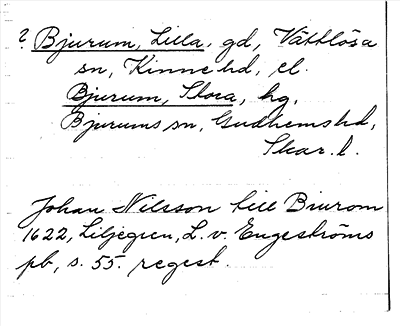 ? Bjurum, Lilla, gd, Vättlösa
sn, Kinne hd, el.
Bjurum, Stora, hg,
Bjurums sn, Gudhems hd,
Skar. l.
Johan Nilsson till Biurom
1622, Liljegren, L. v. Engeströms
pb, s. 55. regest.